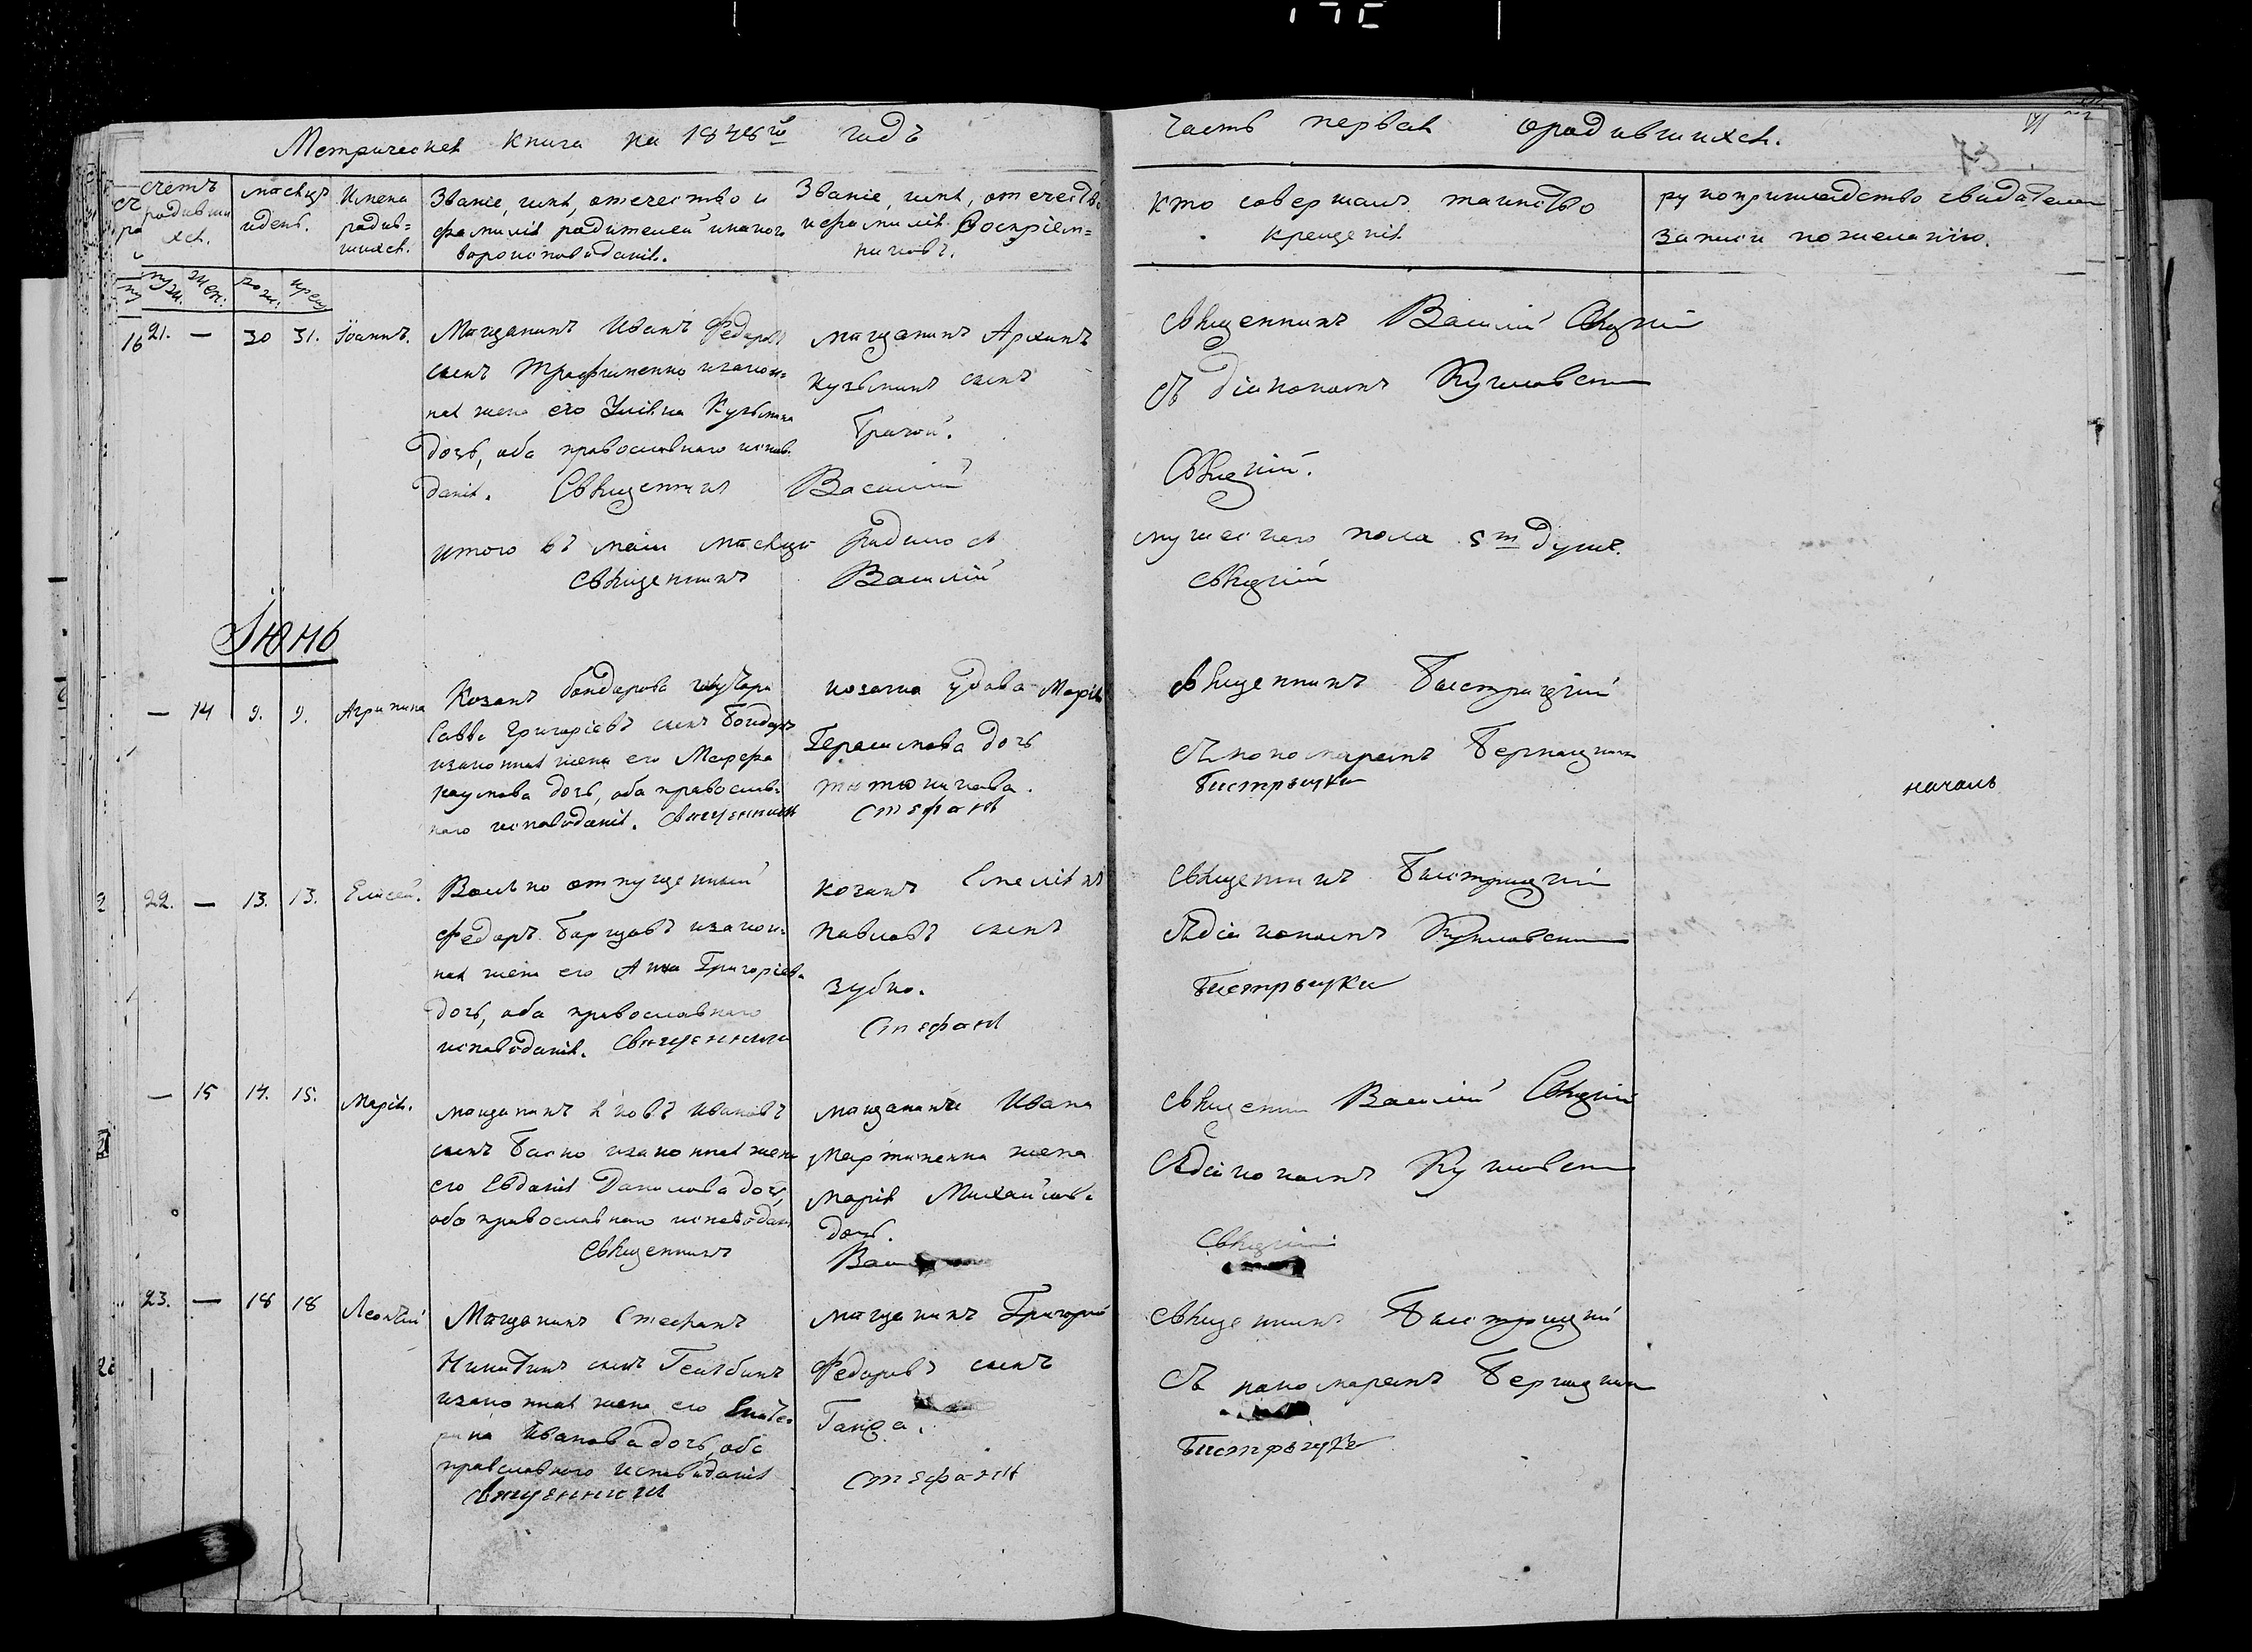 Метрическая книга на 1848й годъ
часть первая
о родившихся.
счетъ родивши
хся.
месяцъ
и день.
Имена
родив=
шихся.
Званіе, имя, отечество и
фамилія родителей и какого
вероисповеданія.
Званіе, имя, отечество
и фамилія Воспріем=
никовъ.
кто совершалъ таинство
крещенія
рукоприкладство свидетелей
записи по желанію.
муж.
жен.
рож.
крещ
21. — 30 31. Іоаннъ.
Мещанинъ Иванъ Федоровъ
сынъ Трофименко и закон=
ная жена его Уліяна Кузьмина
дочь, оба православнаго испов.
данія. Священникъ Василій
мещанинъ Архипъ
Кузьминъ сынъ
Грачой.
священникъ Василій
съ діакономъ
итого въ маи месяце родилося
мужескаго пола 5ть душъ.
священникъ Василій
Іюнь
— 14 9. 9. Агрипина
Козакъ бондарова хутора
Савва Григоріевъ сынъ Бондарь
и законная жена его Марфа
Наумова дочь, оба православ=
наго исповеданія. Священникъ
козачка удова Марія
Герасимова дочь
Стефанъ
священникъ Быстрицкій
съ пономаремъ
Быстрыцки
началъ
22. — 13. 13. Елисей.
Вольно отпущенный
Федоръ Борщовъ и закон=
ная жена его Анна Григоріева
дочь, оба православнаго
исповеданія. Священникъ
козакъ Емеліянъ
Павловъ сынъ
Зубко.
Стефанъ
священникъ Быстрицкій
съ діакономъ
Быстрыцки
— 15 14. 15. Марія.
мещанинъ Яковъ Ивановъ
сынъ Баско и законная жена
его Евдокія Данилова дочь,
оба православнаго исповедан
священникъ
мещанина Ивана
Мартиненка жена
Марія Михайлова
дочь.
священникъ Василій
съ діакономъ
23. — 18 18 Леонтій
Мещанинъ Стефанъ
Никитинъ сынъ
и законная жена его Екате=
рина Иванова дочь, оба
православного исповеданія
священникъ
мещанинъ Григорій
Федоровъ сынъ
Стефанъ
священникъ Быстрицкій
съ пономаремъ
Быстрыцки